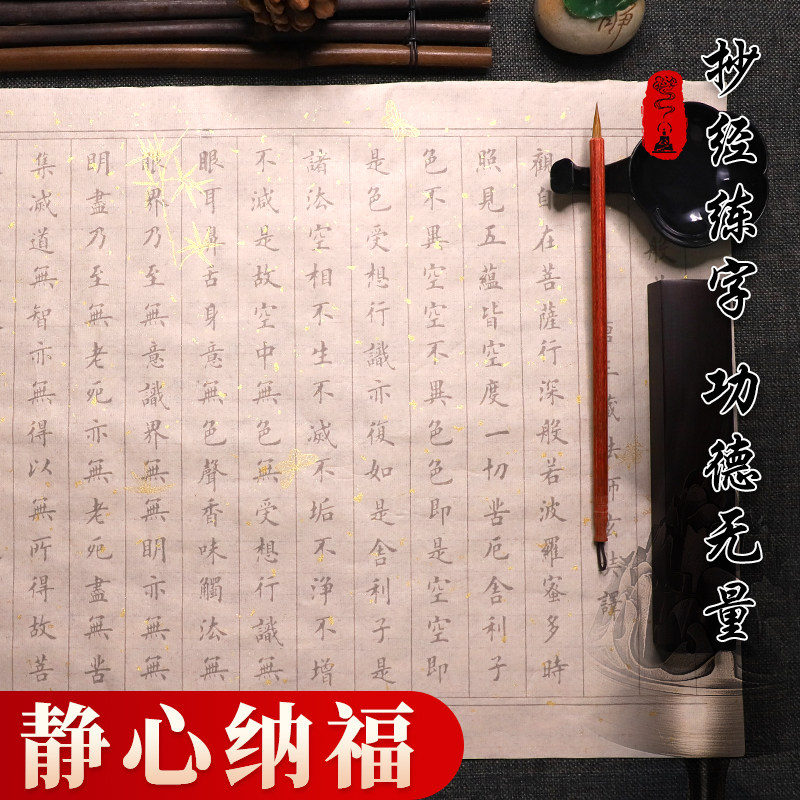 抄经练字 功德无量
般
三藏法師玄奘譯
觀自在菩薩行深般若波羅蜜多時
照見五蘊皆空度一切苦厄舍利子
色不異空空不異色色即是空空即
是色受想行識亦復如是舍利子是
諸法空相不生不滅不垢不淨不增
不減是故空中無色無受想行識無
眼耳鼻舌身意無色聲香味觸法無
眼界乃至無意識界無無明亦無無
明盡乃至無老死亦無老死盡無苦
集滅道無智亦無得以無所得故菩
静心纳福